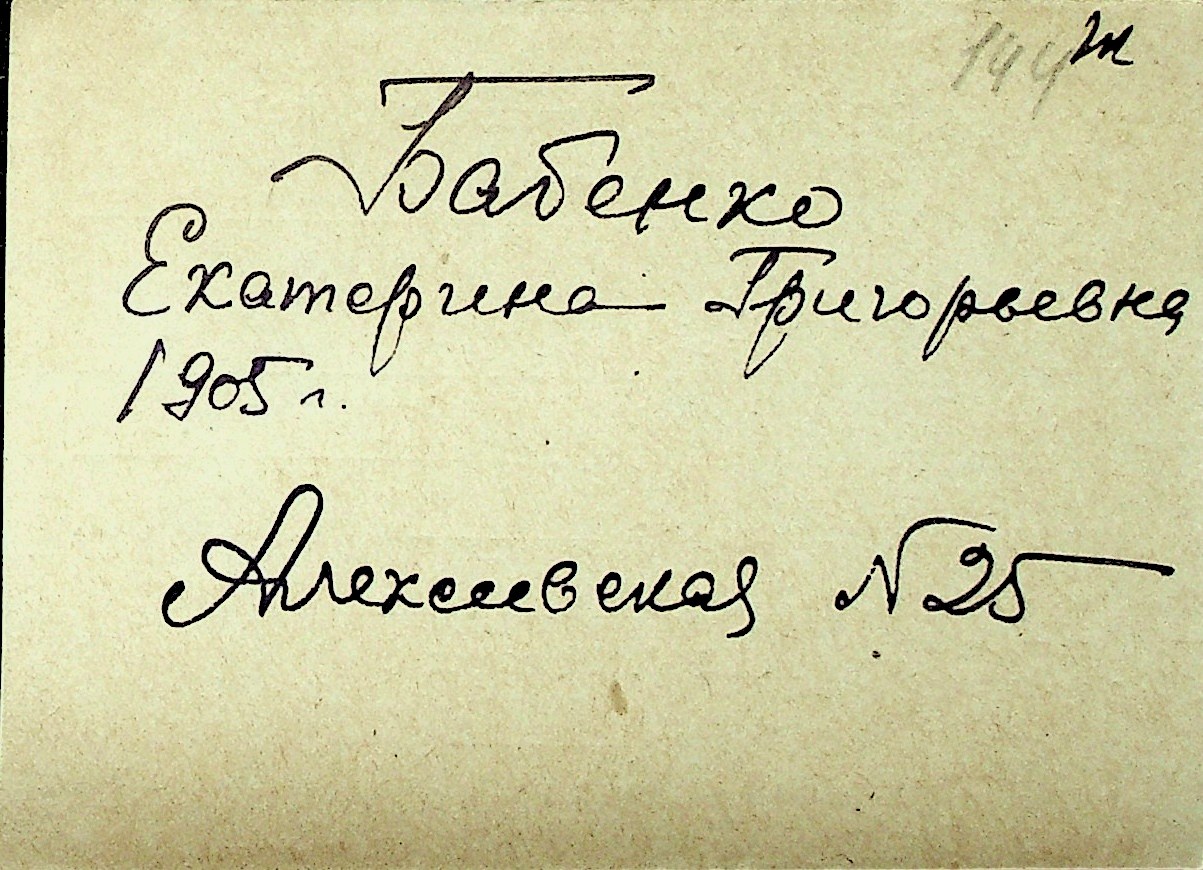 144
Бабенко
Екатерина Григорьевна
1905 г.
Алексеевская N 25